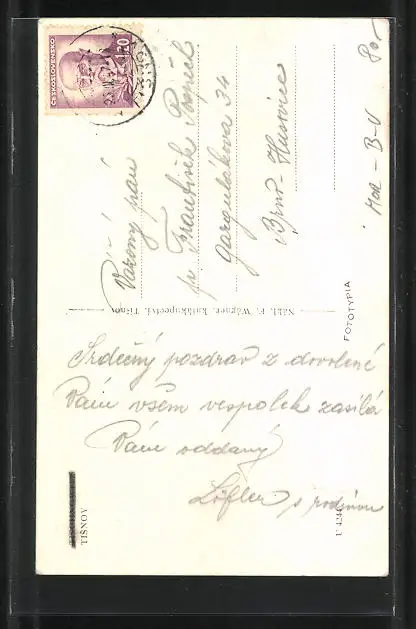 ČESKOSLOVENSKO
1.20
Vážený pán
p. František
Gargulákova 34
Brno – Husovice
Mor – B – V 80
Nákl. F. Wágner, knihkupectví, Tišnov
FOTOTYPIA
Srdečný pozdrav z dovolené
Vám všem vespolek zasílá
Vám oddaný
Löfler s rodinou
TIŠNOV